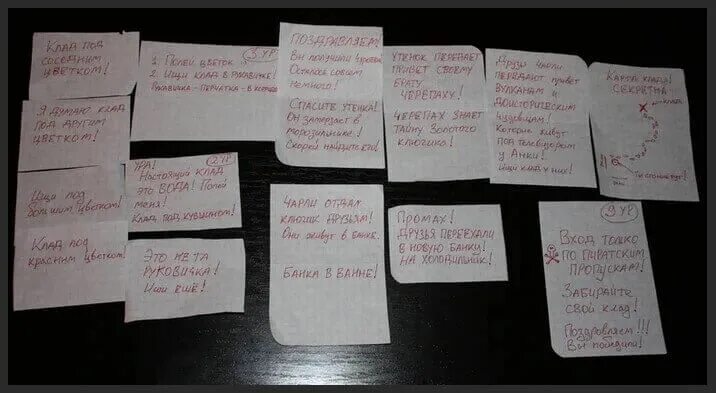 Клад под
соседним
цветком!
Я думаю клад
под другим
цветком!
Ищи под
большим цветком!
Клад под
красным цветком!
3 ур
1. Полей цветок
2. Ищи клад в рукавичке!
Рукавичка - перчатка - в
Ура! 2 ур
Настоящий клад
это ВОДА! Полей
меня!
Клад под кувшином!
Это не та
руковичка!
Ищи ещё!
Поздравляем!
Вы получили
Осталось совсем
немного!
Спасите утенка!
Он замерзает в
морозильнике!
Скорей найдите его!
Чарли отдал
ключик друзьям!
Они живут в банке.
Банка в ванне!
Утенок передает
привет своему
брату
черепаху!
Черепах знает
тайну Золотого
ключика!
Промах!
Друзья переехали
в новую банку!
На холодильник!
Друзья Чарли
передают привет
вулканам и
доисторическим
ящерицам!
Которые живут
под телевизором
у Аньки!
Ищи клад у них!
Карта клада!
Секретна
клад
Ты стоишь тут!
9 ур
Вход только
по пиратским
пропускам!
Забирайте
свой клад!
Поздравляем!!!
Вы победили!